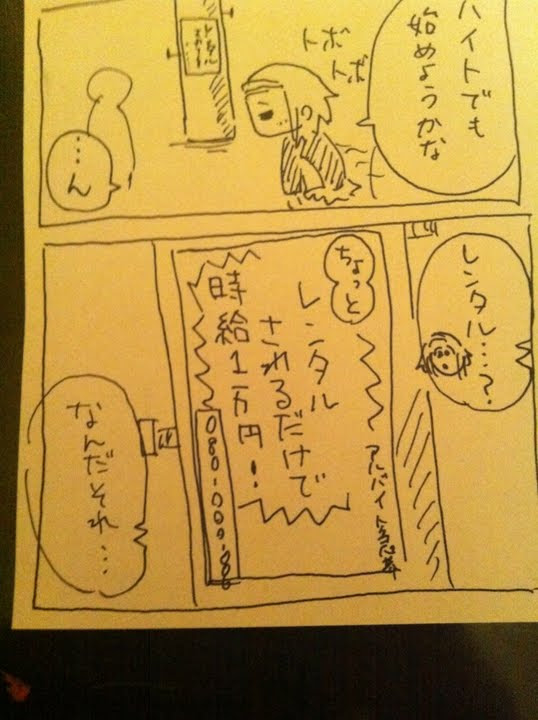 バイトでも
始めようかな
トボ
トボ
レンタル
…ん
レンタル…?
ちょっと
レンタル
されるだけで
時給1万円!
アルバイト急募
なんだそれ…